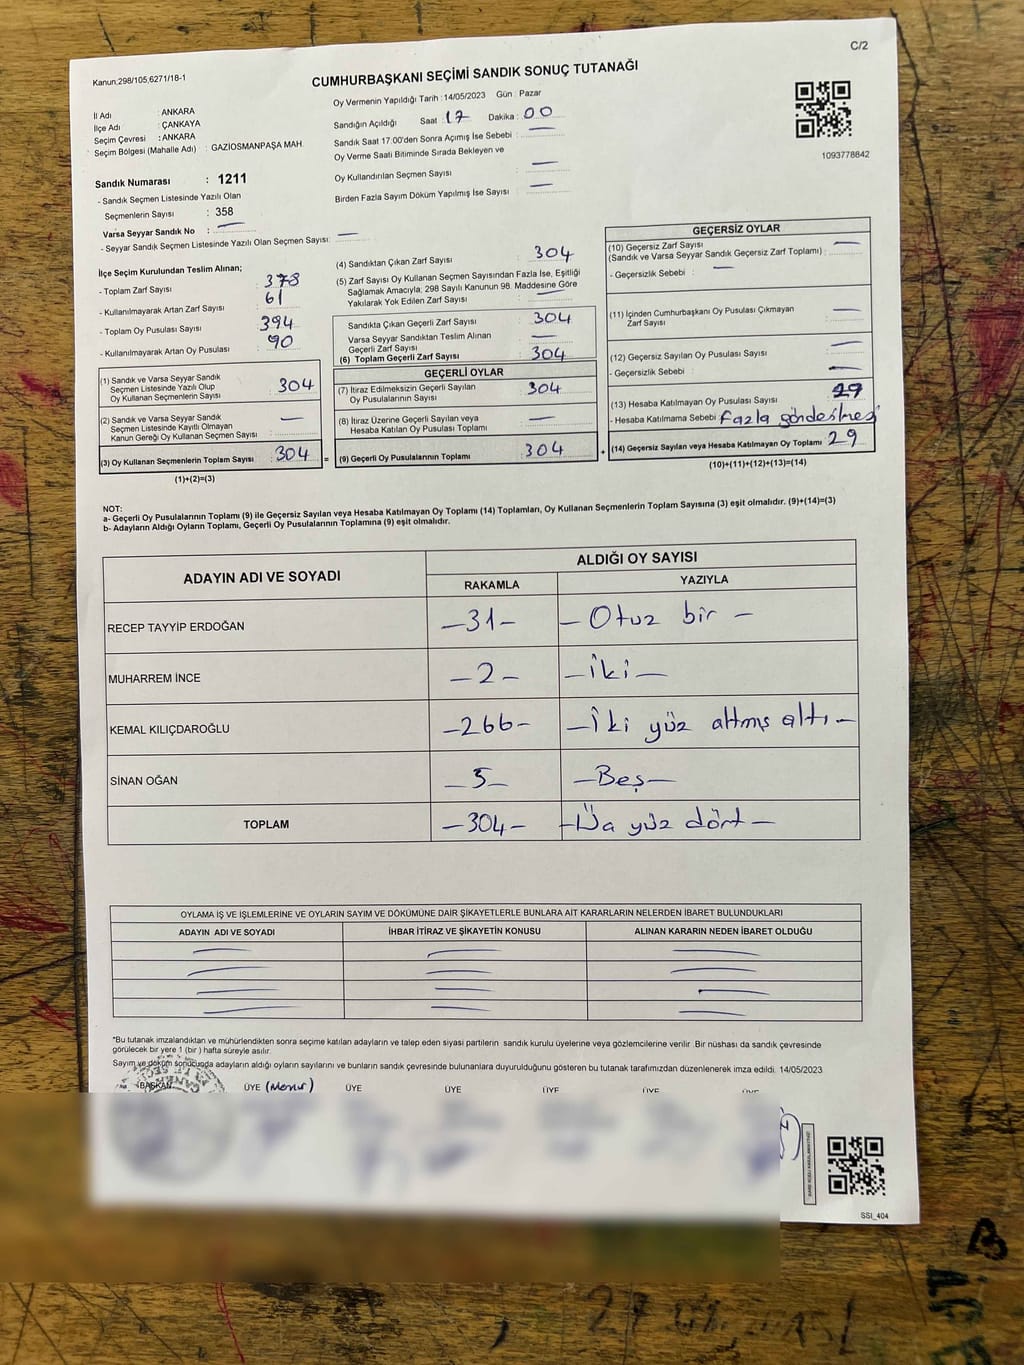 C/2
Kanun:298/105,6271/18-1
CUMHURBAŞKANI SEÇİMİ SANDIK SONUÇ TUTANAĞI
Oy Vermenin Yapıldığı Tarih :14/05/2023 Gün : Pazar
İl Adı : ANKARA
İlçe Adı : ÇANKAYA
Seçim Çevresi : ANKARA
Seçim Bölgesi (Mahalle Adı) : GAZİOSMANPAŞA MAH.
Sandığın Açıldığı Saat 17 Dakika : 00
Sandık Saat 17:00'den Sonra Açımış İse Sebebi : —
Oy Verme Saati Bitiminde Sırada Bekleyen ve
Oy Kullandırılan Seçmen Sayısı : —
Birden Fazla Sayım Döküm Yapılmış İse Sayısı : —
1093778842
Sandık Numarası : 1211
- Sandık Seçmen Listesinde Yazılı Olan
Seçmenlerin Sayısı : 358
Varsa Seyyar Sandık No : —
- Seyyar Sandık Seçmen Listesinde Yazılı Olan Seçmen Sayısı: —
İlçe Seçim Kurulundan Teslim Alınan;
- Toplam Zarf Sayısı : 378
- Kullanılmayarak Artan Zarf Sayısı : 61
- Toplam Oy Pusulası Sayısı : 394
- Kullanılmayarak Artan Oy Pusulası : 90
(1) Sandık ve Varsa Seyyar Sandık
Seçmen Listesinde Yazılı Olup
Oy Kullanan Seçmenlerin Sayısı : 304
(2) Sandık ve Varsa Seyyar Sandık
Seçmen Listesinde Kayıtlı Olmayan
Kanun Gereği Oy Kullanan Seçmen Sayısı : —
(3) Oy Kullanan Seçmenlerin Toplam Sayısı : 304 =
(1)+(2)=(3)
(4) Sandıktan Çıkan Zarf Sayısı : 304
(5) Zarf Sayısı Oy Kullanan Seçmen Sayısından Fazla İse, Eşitliği
Sağlamak Amacıyla; 298 Sayılı Kanunun 98. Maddesine Göre
Yakılarak Yok Edilen Zarf Sayısı : —
Sandıkta Çıkan Geçerli Zarf Sayısı : 304
Varsa Seyyar Sandıktan Teslim Alınan
Geçerli Zarf Sayısı : —
(6) Toplam Geçerli Zarf Sayısı : 304
GEÇERLİ OYLAR
(7) İtiraz Edilmeksizin Geçerli Sayılan
Oy Pusulalarının Sayısı : 304
(8) İtiraz Üzerine Geçerli Sayılan veya
Hesaba Katılan Oy Pusulası Toplamı : —
(9) Geçerli Oy Pusulalarının Toplamı : 304 +
GEÇERSİZ OYLAR
(10) Geçersiz Zarf Sayısı
(Sandık ve Varsa Seyyar Sandık Geçersiz Zarf Toplamı) : —
- Geçersizlik Sebebi : —
(11) İçinden Cumhurbaşkanı Oy Pusulası Çıkmayan
Zarf Sayısı : —
(12) Geçersiz Sayılan Oy Pusulası Sayısı : —
- Geçersizlik Sebebi : —
(13) Hesaba Katılmayan Oy Pusulası Sayısı : 29
- Hesaba Katılmama Sebebi : Fazla
(14) Geçersiz Sayılan veya Hesaba Katılmayan Oy Toplamı : 29
(10)+(11)+(12)+(13)=(14)
NOT:
a- Geçerli Oy Pusulalarının Toplamı (9) ile Geçersiz Sayılan veya Hesaba Katılmayan Oy Toplamı (14) Toplamları, Oy Kullanan Seçmenlerin Toplam Sayısına (3) eşit olmalıdır. (9)+(14)=(3)
b- Adayların Aldığı Oyların Toplamı, Geçerli Oy Pusulalarının Toplamına (9) eşit olmalıdır.
ADAYIN ADI VE SOYADI ALDIĞI OY SAYISI
RAKAMLA YAZIYLA
RECEP TAYYİP ERDOĞAN —31— — Otuz bir —
MUHARREM İNCE —2— —İki—
KEMAL KILIÇDAROĞLU —266— —İki yüz altmış altı—
SİNAN OĞAN —5— —Beş—
TOPLAM —304— yüz dört —
OYLAMA İŞ VE İŞLEMLERİNE VE OYLARIN SAYIM VE DÖKÜMÜNE DAİR ŞİKAYETLERLE BUNLARA AİT KARARLARIN NELERDEN İBARET BULUNDUKLARI
ADAYIN ADI VE SOYADI İHBAR İTİRAZ VE ŞİKAYETİN KONUSU ALINAN KARARIN NEDEN İBARET OLDUĞU
*Bu tutanak imzalandıktan ve mühürlendikten sonra seçime katılan adayların ve talep eden siyasi partilerin sandık kurulu üyelerine veya gözlemcilerine verilir. Bir nüshası da sandık çevresinde
görülecek bir yere 1 (bir ) hafta süreyle asılır.
Sayım ve döküm sonucunda adayların aldığı oyların sayılarını ve bunların sandık çevresinde bulunanlara duyurulduğunu gösteren bu tutanak tarafımızdan düzenlenerek imza edildi. 14/05/2023
BAŞKAN ÜYE (Memur) ÜYE ÜYE ÜYE ÜYE ÜYE
SSI_404